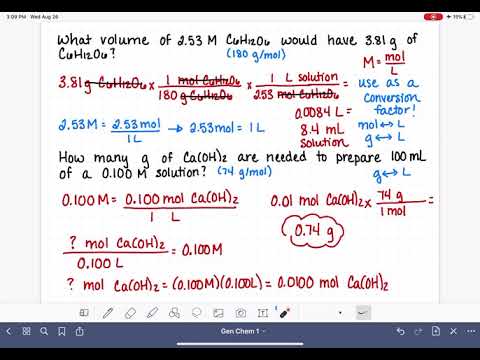 3:09 PM Wed Aug 26
11%
What volume of 2.53 M C₆H₁₂O₆ would have 3.81 g of
C₆H₁₂O₆? (180 g/mol)
M = mol/L
3.81 g C₆H₁₂O₆ × 1 mol C₆H₁₂O₆/180 g C₆H₁₂O₆ × 1 L solution/2.53 mol C₆H₁₂O₆ =
use as a
conversion
factor!
mol ↔ L
g ↔ L
0.0084 L =
8.4 mL
solution
2.53 M = 2.53 mol/1 L → 2.53 mol = 1 L
How many g of Ca(OH)₂ are needed to prepare 100 mL
of a 0.100 M solution? (74 g/mol)
g ↔ L
0.100 M = 0.100 mol Ca(OH)₂/1 L
0.01 mol Ca(OH)₂ × 74 g/1 mol =
0.74 g
? mol Ca(OH)₂/0.100 L = 0.100 M
? mol Ca(OH)₂ = (0.100 M)(0.100 L) = 0.0100 mol Ca(OH)₂
Gen Chem 1